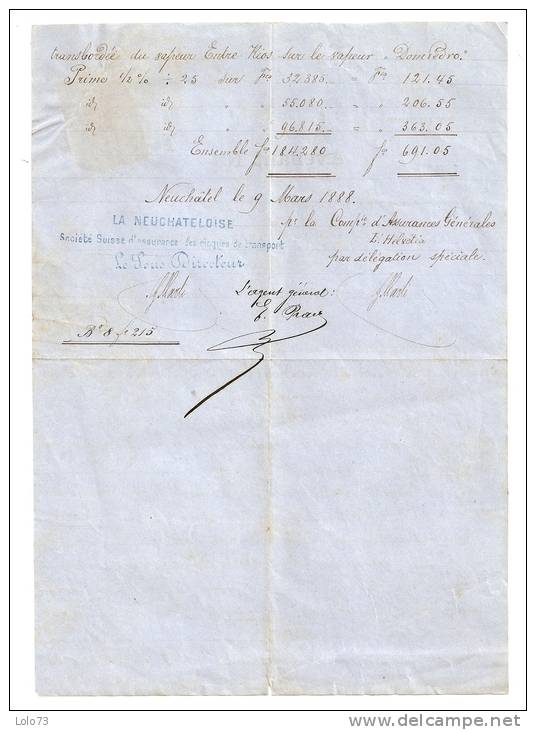 transbordée du vapeur Entre Rios sur le vapeur "Dom Pedro."
Prime 1/2 % ÷ 25 sur frs 32.385.. = frs 121.45
id id " " 55.080.. = " 206.55
id id " " 96.815.. = " 363.05
Ensemble frs 184.280 frs 691.05
Neuchâtel le 9 Mars 1888.
LA NEUCHATELOISE
Société Suisse d'assurance des risques de transport
Le Sous Directeur
pr la Compie d'Assurances Générales
L'Helvetia
par délégation spéciale.
L'agent général:
No 8 fo 215
Lolo73
www.delcampe.net